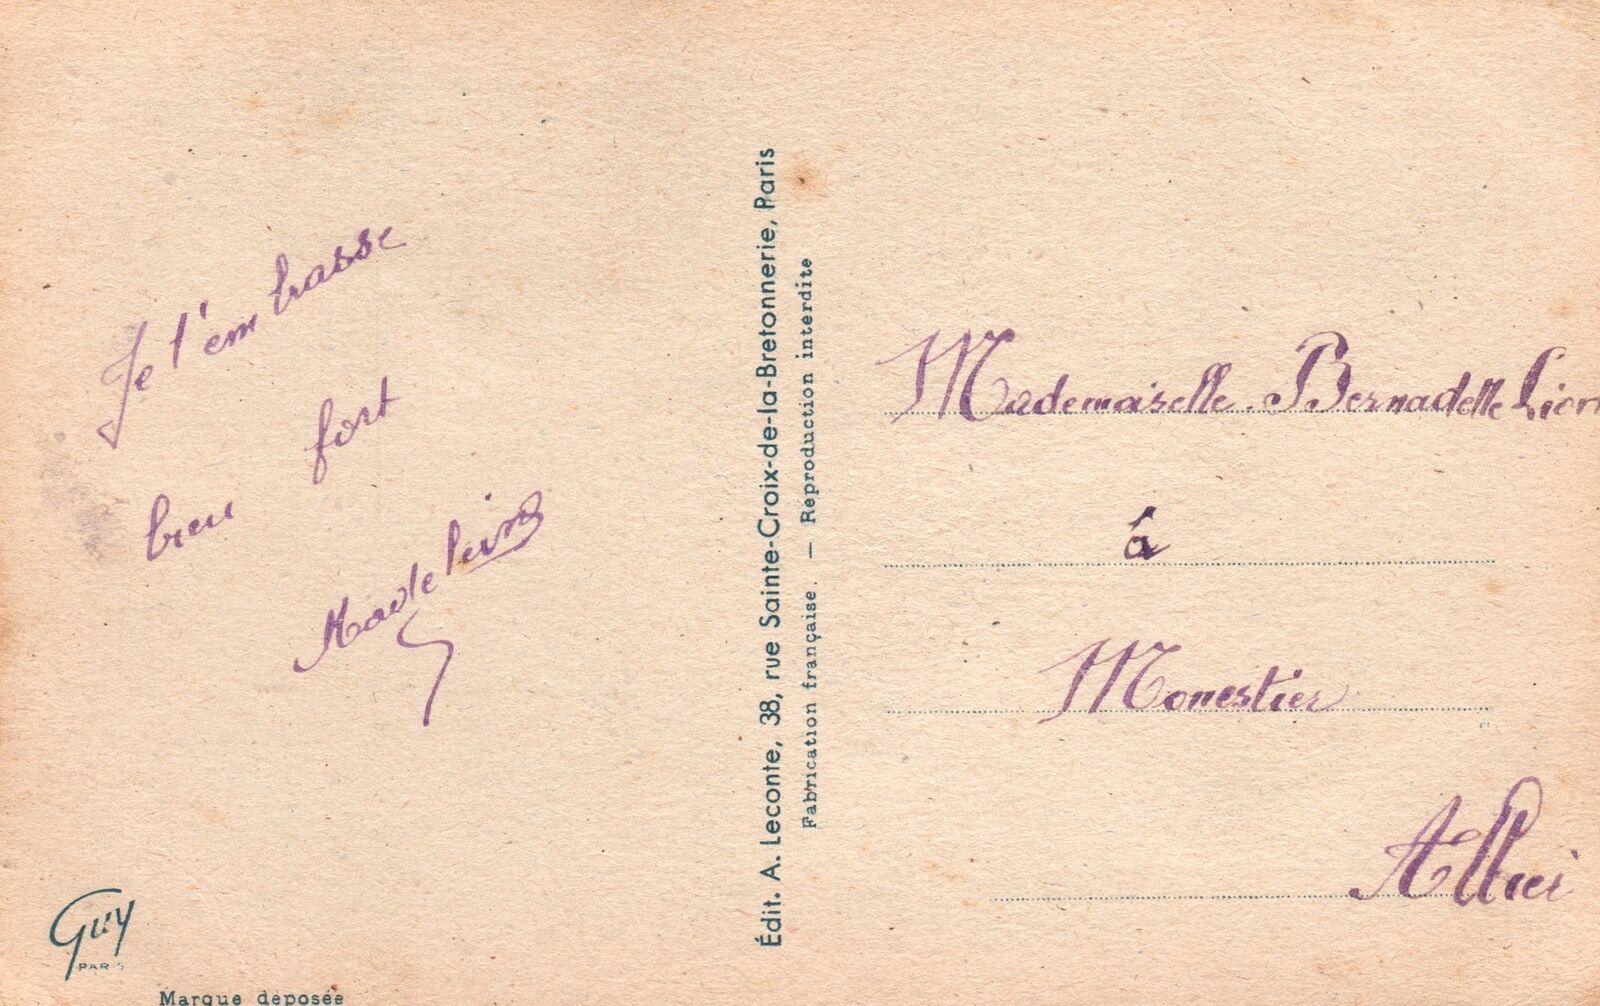 Je t'embrasse
bien fort
Madeleine
Édit. A. Leconte, 38, rue Sainte-Croix-de-la-Bretonnerie, Paris
Fabrication française. — Reproduction interdite
Mademoiselle Bernadette
à
Monestier
Allier
Guy
PARIS
Marque déposée